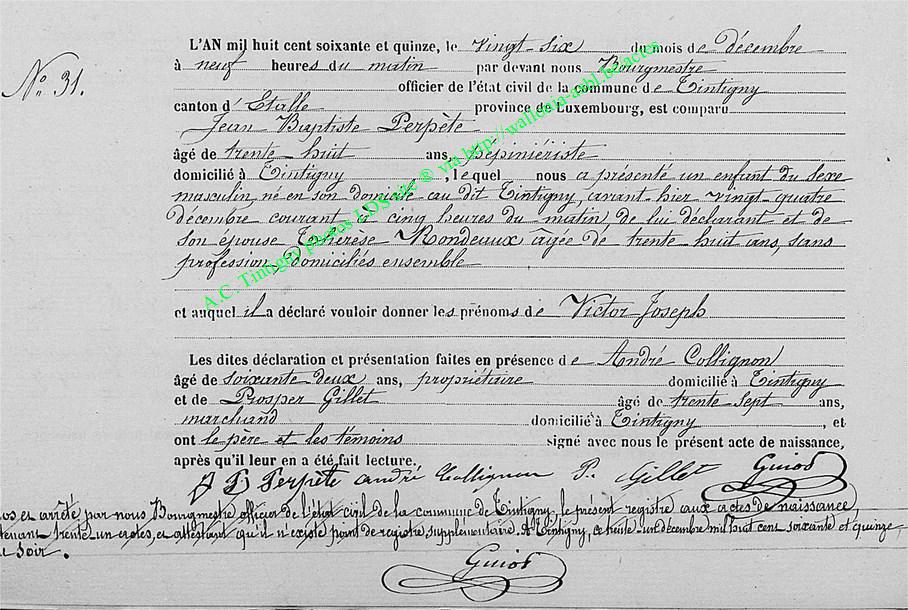 L'AN mil huit cent soixante et quinze, le vingt-six du mois de décembre
à neuf heures du matin par devant nous Bourgmestre
No 31.
officier de l'état civil de la commune de Tintigny
canton d'Etalle province de Luxembourg, est comparu
Jean Baptiste Perpète
âgé de trente huit ans, pépiniériste
domicilié à Tintigny, lequel nous a présenté un enfant du sexe
masculin, né en son domicile au dit Tintigny, avant-hier vingt-quatre
décembre courant à cinq heures du matin, de lui déclarant et de
son épouse Thérèse Rondeaux âgée de trente huit ans, sans
profession, domiciliés ensemble
et auquel il a déclaré vouloir donner les prénoms de Victor Joseph
Les dites déclaration et présentation faites en présence de André Collignon
âgé de soixante deux ans, propriétaire domicilié à Tintigny
et de Prosper Gillet âgé de trente sept ans,
marchand domicilié à Tintigny, et
ont le père et les témoins signé avec nous le présent acte de naissance,
après qu'il leur en a été fait lecture.
J B Perpète andré Collignon P. Gillet Guiot
os et arrêté par nous Bourgmestre officier de l'état civil de la commune de Tintigny, le présent registre aux actes de naissance,
tenant trente un actes, et attestant qu'il n'existe point de registre supplémentaire. A Tintigny, ce trente-un décembre mil huit cent soixante et quinze,
soir.
Guiot
A.C. Tintigny photos LDS site ® via http://wallonia-asbl.be/actes